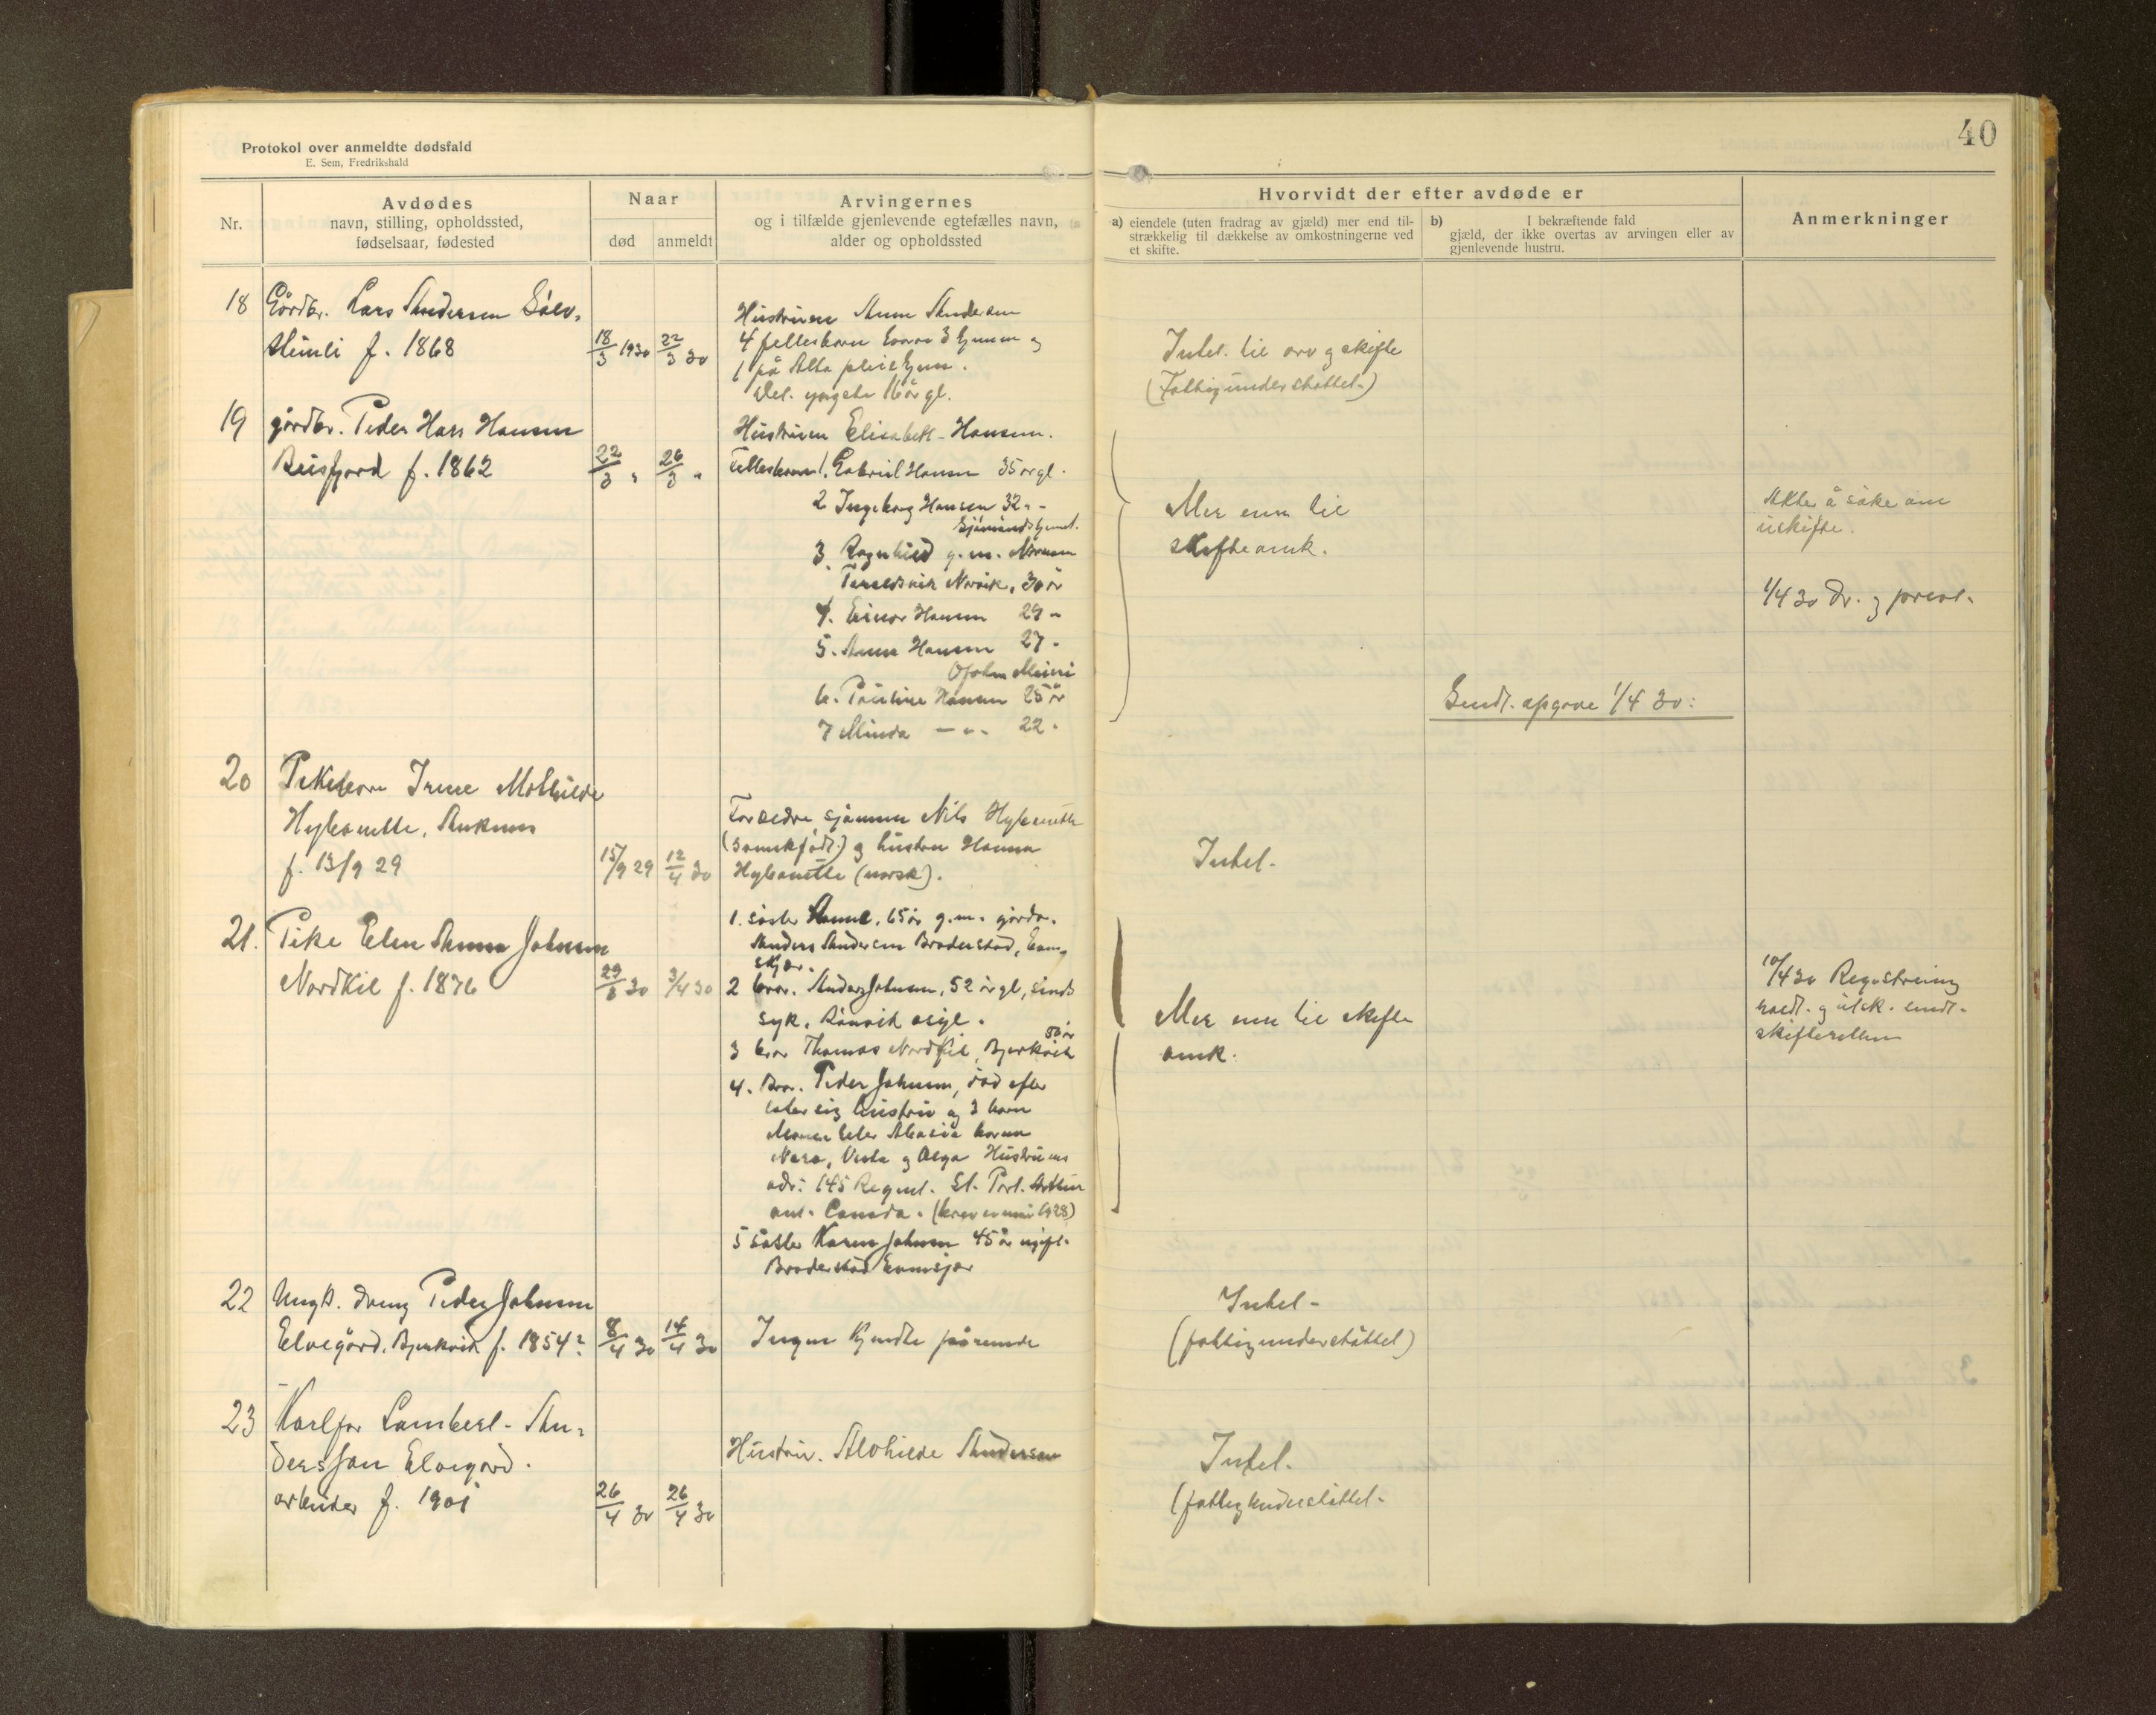 40
Protokol over anmeldte dødsfald
E. Sem, Fredrikshald
Nr.
Avdødes
navn, stilling, opholdssted,
fødselsaar, fødested
Naar
død
anmeldt
Arvingernes
og i tilfælde gjenlevende egtefælles navn,
alder og opholdssted
Hvorvidt der efter avdøde er
a) eiendele (uten fradrag av gjæld) mer end til-
strækkelig til dækkelse av omkostningerne ved
et skifte.
b) I bekræftende fald
gjæld, der ikke overtas av arvingen eller av
gjenlevende hustru.
Anmerkninger
18 Gårdbr. Lars Andersen Sølv-
steinli f. 1868
18/3 1930
22/3 30
Hustruen Anna Andersen
4 fellesbarn hvorav 3 hjemme og
1 på Alta pleiehjem.
Det. yngste 16 år gl.
Intet. til arv og skifte
(Fattigunderstøttet.)
19 gårdbr. Peder Hars Hansen
Beisfjord f. 1862
22/3 "
26/3 "
Hustruen Elisabeth Hansen.
Fellesbarn 1. Gabriel Hansen 35 år gl.
2 Ingeborg Hansen 32 " -
Sjømandshjemt.
3. Ragnhild g. m.
Narvik, 30 år
4. Einar Hansen 29 "
5. Anna Hansen 27 "
6. Pauline Hansen 25 år
7 Minda — " - 22 "
Mer enn til
skifteomk.
Akter å søke om
uskifte.
1/4 30 og
Sendt. opgave 1/4 30:
20 Pikebarn Irene Mathilde
Hybonette, Ankenes
f. 13/9 29
15/9 29
12/4 30
Foreldre, sjømann Nils Hybenette
og hustru Hanna
Hybonette (norsk).
Intet.
21. Pike Elen Anna Johnsen
Nordkil f. 1876
29/3 30
3/4 30
1. søster Anne, 65 år g. m. gårdbr.
Anders Andersen Broderstad, Evens-
skjær.
2 bror. Anders Johnsen, 52 år gl, sinds
syk. Rønvik asyl.
3 bror Thomas Nordkil, Bjerkvik 50 år
4. Bror. Peder Johnsen, død efter
later sig hustru og 3 barn
Nera, Viola og Olga Hustruens
adr: 145 Regent. St. Port. Arthur
ont. Canada. (brev av mai 1928)
5 søster Karen Johnsen 45 år ugift.
Broderstad Evenskjær
Mer enn til skifte
omk.
10/4 30 Registrering
holdt. og utsk. sendt.
skifteretten
22 Ungk. dreng Peder Johnsen
Elvegård, Bjerkvik f. 1854?
8/4 30
14/4 30
Ingen kjendte pårørende
Intet-
(fattigunderstøttet)
23 Karlfor Lambert- An-
dersson Elvegård.
arbeider f. 1901
26/4 30
26/4 30
Hustru. Alvhilde Andersen
Intet.
(fattigunderstøttet.